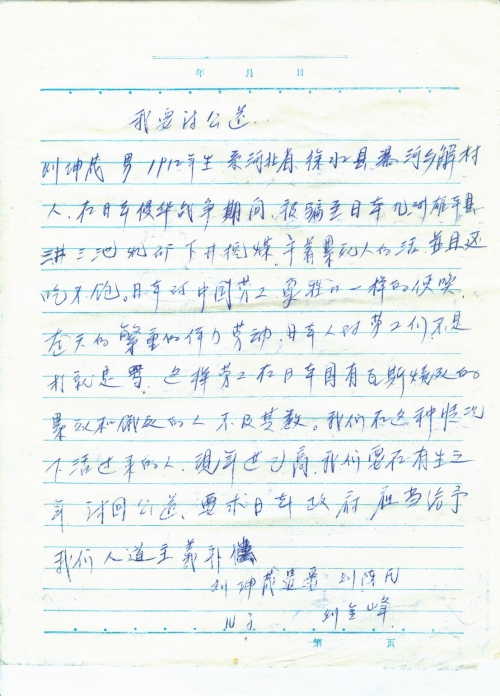 年 月 日
我要讨公道
刘坤茂 男 1912年生 系河北省徐水县瀑河乡解村
人.在日本侵华战争期间.被骗至日本九洲
三池 矿下井挖煤.干着累死人的活.并且还
吃不饱。日本对中国劳工象牲口一样的使唤.
在天的繁重的体力劳动.日本人对劳工们不是
打就是骂.这样劳工在日本国有瓦斯烧死的
累死和饿死的人不及其数。我们在这种情况
下活过来的人.现年过已高.我们要在有生之
年讨回公道.要求日本政府应当给予
我们人道主义补
刘坤茂 刘陈氏
刘全峰
第 页